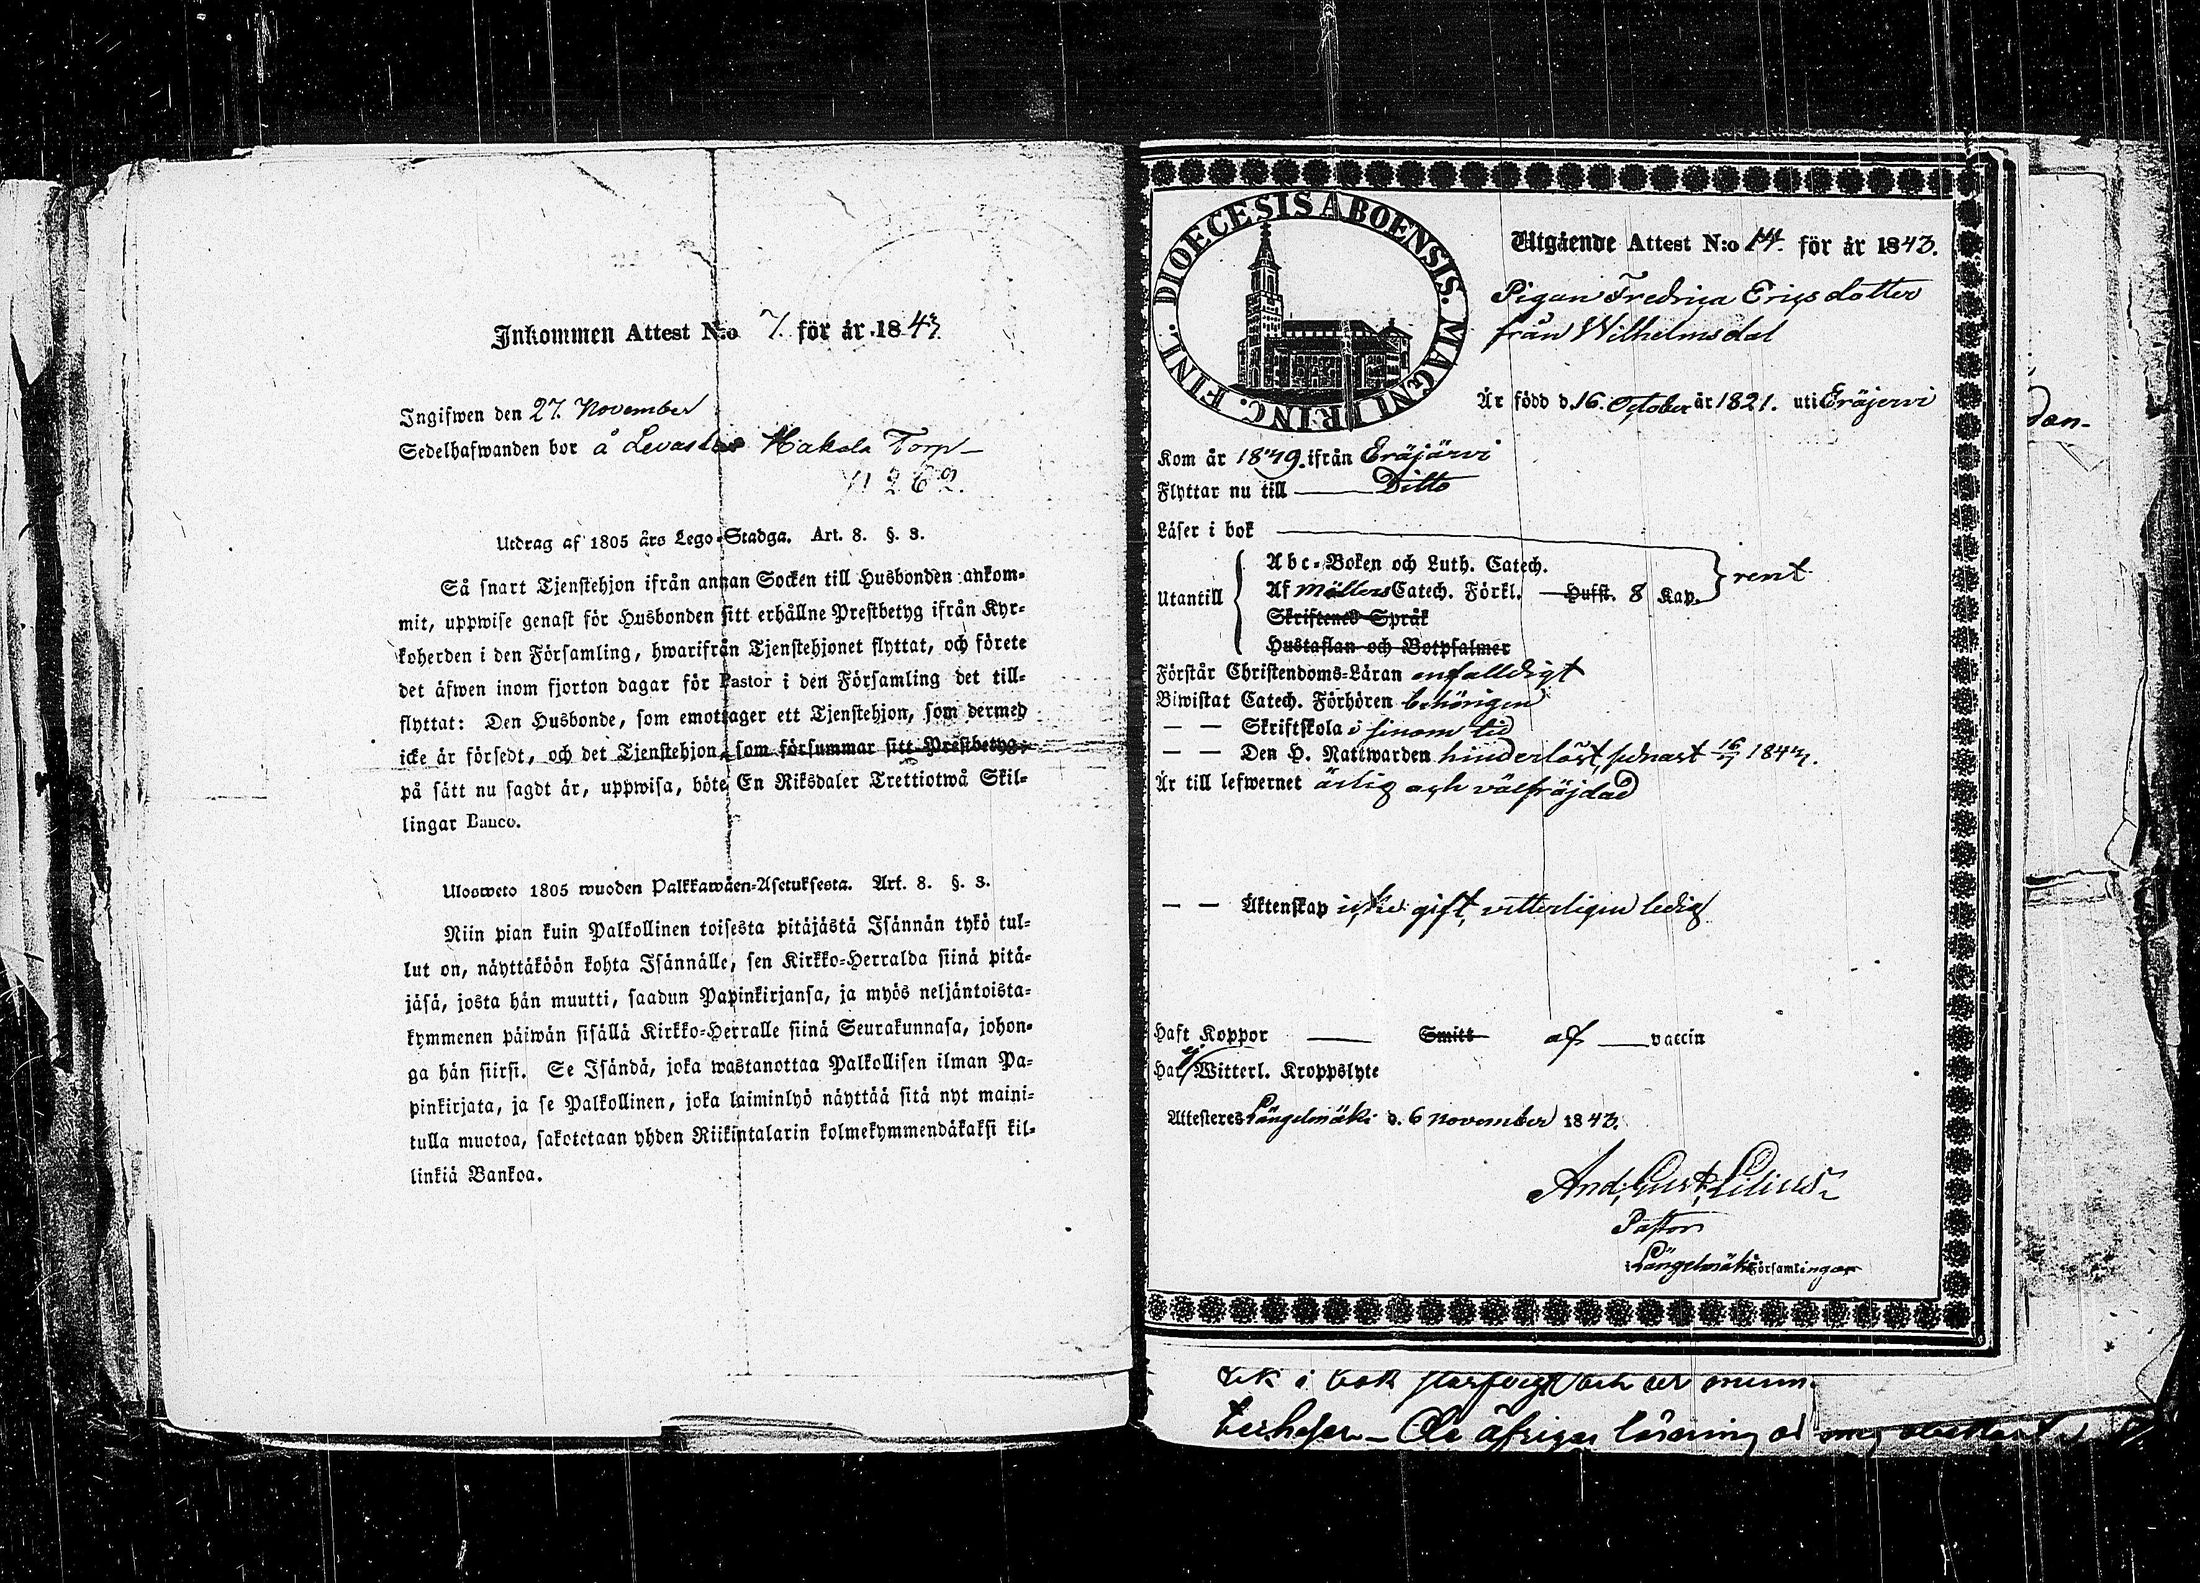 Inkommen Attest N:o 7. för år 1843.
Ingifwen den 27. November
Sedelhafwanden bor å Hakala Torp
Utdrag af 1805 års Lego-Stadga. Art. 8. §. 3.
Så snart Tjenstehjon ifrån annan Socken till Husbonden ankom-
mit, uppwise genast för Husbonden sitt erhållne Prestbetyg ifrån Kyr-
koherden i den Församling, hwarifrån Tjenstehjonet flyttat, och förete
det äfwen inom fjorton dagar för Pastor i den Församling det till-
flyttat: Den Husbonde, som emottager ett Tjenstehjon, som dermed
icke är försedt, och det Tjenstehjon, som försummar sitt Prestbetyg,
på sätt nu sagdt är, uppwisa, böte En Riksdaler Trettiotwå Skil-
lingar Banco.
Ulosweto 1805 wuoden Palkkawäen-Asetuksesta. Art. 8. §. 3.
Niin pian kuin Palkollinen toisesta pitäjästä Isännän tykö tul-
lut on, näyttäköön kohta Isännälle, sen Kirkko-Herralda siinä pitä-
jäsä, josta hän muutti, saadun Papinkirjansa, ja myös neljäntoista-
kymmenen päiwän sisällä Kirkko-Herralle siinä Seurakunnasa, johon-
ga hän siirsi. Se Isändä, joka wastanottaa Palkollisen ilman Pa-
pinkirjata, ja se Palkollinen, joka laiminlyö näyttää sitä nyt maini-
tulla muotoa, sakotetaan yhden Riikintalarin kolmekymmendäkaksi kil-
linkiä Bankoa.
DIOECESIS ABOENSIS. MAGNI PRINC. FINL.
Utgående Attest N:o 14. för år 1843.
Pigan Fredrica Ericsdotter
från Wilhelmsdal
Är född d. 16. October år 1821. uti Eräjerwi
Kom år ifrån Eräjärvi
Flyttar nu till Ditto
Läser i bok
Utantill
Abc-Boken och Luth. Catech.
Af Möllers Catech. Förkl. Hufst. 8 Kap. rent
Skriftenes Språk
Hustaflan och Botpsalmer
Förstår Christendoms-Läran enfalldigt
Biwistat Catech. Förhören behörigen
— — Skriftskola i sinom tid
— — Den H. Nattwarden hinderlöst, senast 16/7 1843.
Är till lefwernet ärlig och välfräjdad
— — Äktenskap icke gift, vitterligen ledig
Haft Koppor — Smitt af — vaccin
Har ej Witterl. Kroppslyte
Attesteres Längelmäki d. 6 November 1843.
And. Gust. Lilius
Pastor
i Längelmäki Församlingar
dan-